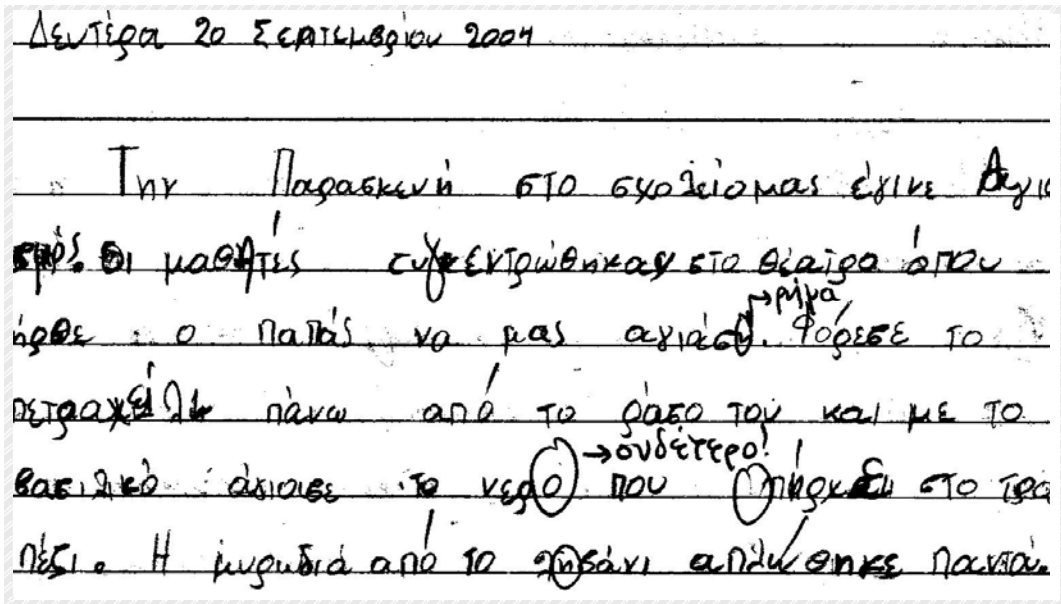 Δευτέρα 20 Σεπτεμβρίου 2004
Την Παρασκευή στο σχολείο μας έγινε Αγια
σμός. Οι μαθητές συγκεντρώθηκαν στο θέατρο όπου
→ρήμα
ήρθε ο παπάς να μας αγιάσει. Φόρεσε το
πετραχείλι πάνω από το ράσο του και με το
→ουδέτερο!
βασιλικό άγιασε το νερό που πήρχε στο τρα
πέζι. Η μυρωδιά από το ληβάνι απλώθηκε παντού.